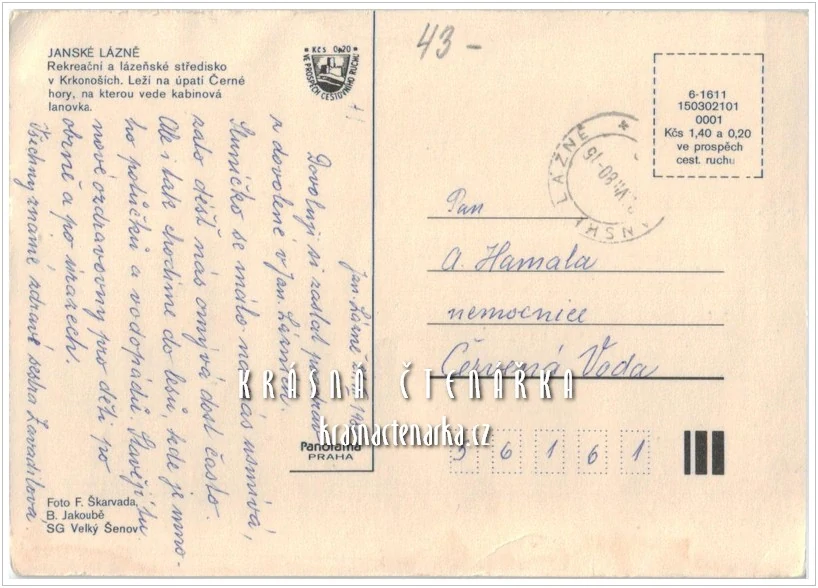 JANSKÉ LÁZNĚ
Rekreační a lázeňské středisko
v Krkonoších. Leží na úpatí Černé
hory, na kterou vede kabinová
lanovka.
Kčs 0,20
VE PROSPĚCH CESTOVNÍHO RUCHU
43-
6-1611
150302101
0001
Kčs 1,40 a 0,20
ve prospěch
cest. ruchu
JANSKÉ LÁZNĚ
VII.80-15
Jan. Lázně
Dovoluji si zaslat pozdrav
z dovolené v Jan. Lázních.
Sluníčko se málo na nás usmívá,
zato déšť nás omývá dost často.
Ale i tak chodíme do lesů, kde je mno-
ho potůčků a vodopádů. Stavějí tu
nové ozdravovny pro děti po
obrně a po úrazech.
Všechny známé zdraví sestra Zavadilová.
Pan
A. Hamala
nemocnice
Červená Voda
56161
KRÁSNÁ ČTENÁŘKA
krasnactenarka.cz
Panorama
PRAHA
Foto F. Škarvada,
B. Jakoubě
SG Velký Šenov